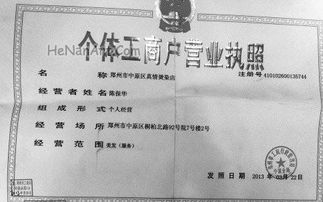 HeNanAnd.Com
个体工商户营业执照
名称 郑州市中原区真情烫染店 注册号 410102600135744
经营者姓名 陈保华
组成形式 个人经营
经营场所 郑州市中原区桐柏北路92号院7号楼2号
经营范围 美发（服务）
发照日期 2013年03月22日